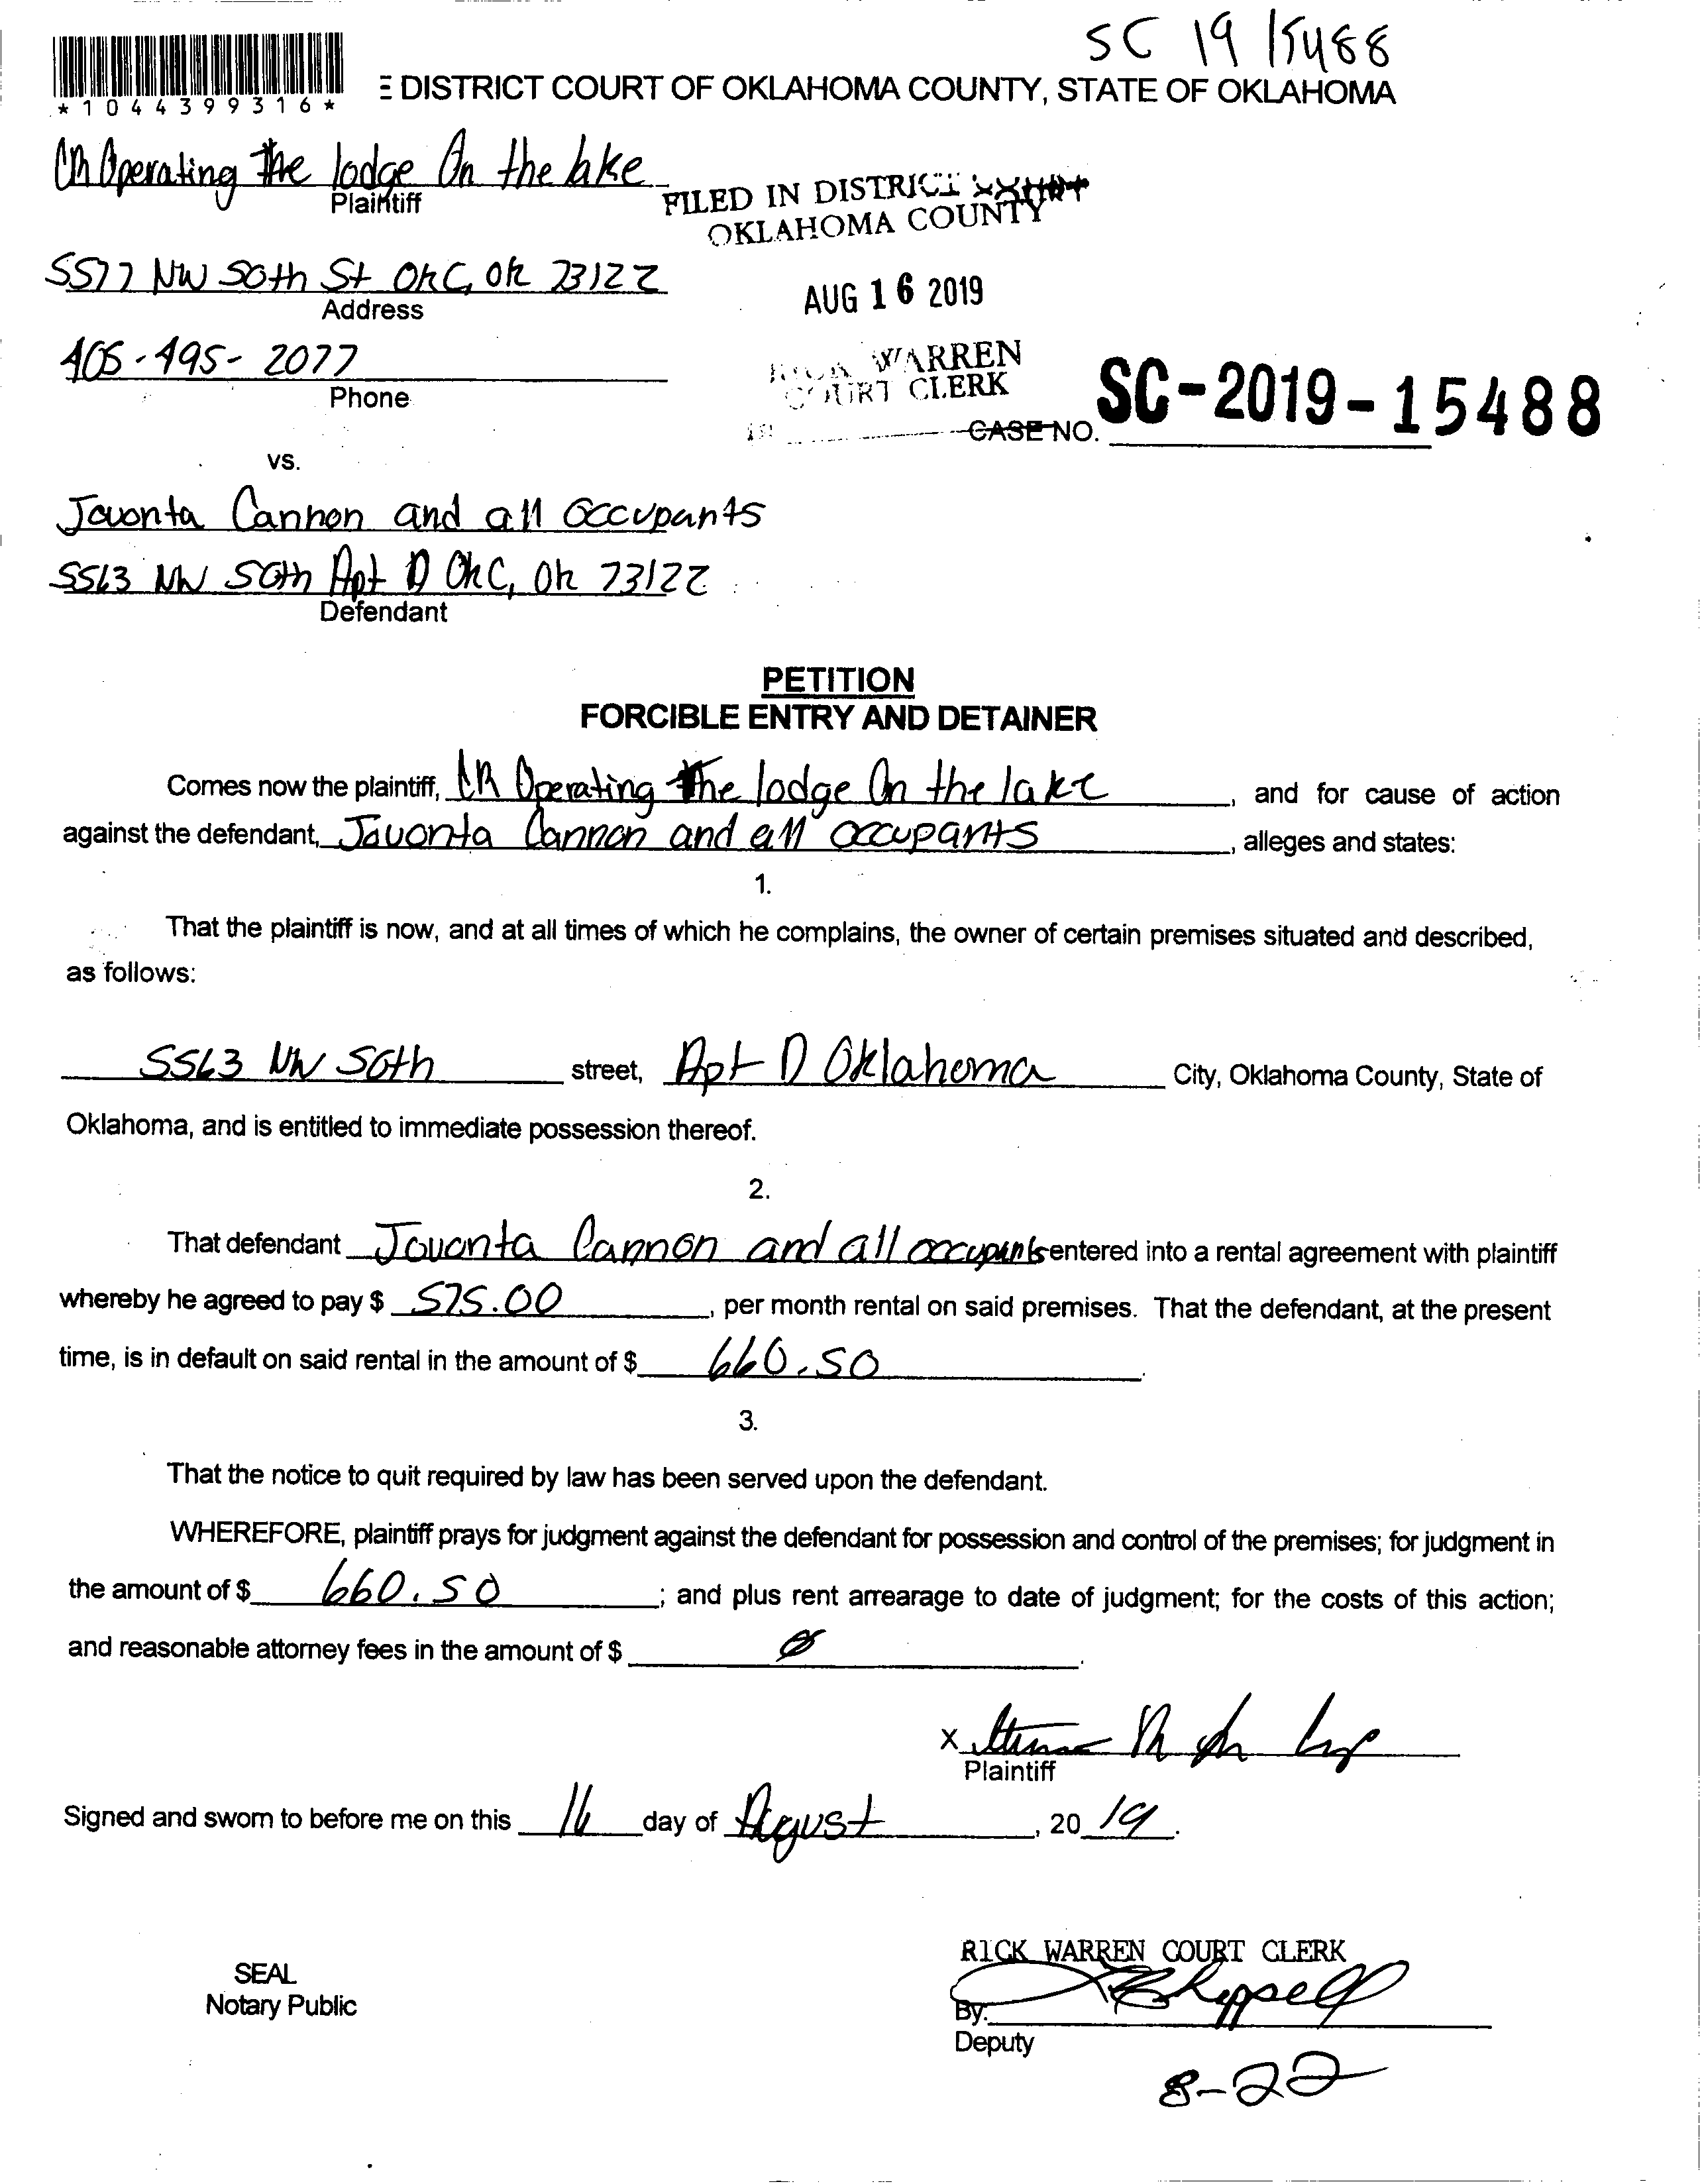 SC 19 15488
*1044399316*
E DISTRICT COURT OF OKLAHOMA COUNTY, STATE OF OKLAHOMA
CR Operating The lodge On the lake
Plaintiff
FILED IN DISTRICT COURT
OKLAHOMA COUNTY
5577 NW 50th St OKC, OK 73122
Address
AUG 16 2019
405-495-2077
Phone
RICK WARREN
COURT CLERK
CASE NO. SC-2019-15488
vs.
Javonta Cannon and all occupants
5563 NW 50th Apt D OKC, OK 73122
Defendant
PETITION
FORCIBLE ENTRY AND DETAINER
Comes now the plaintiff, CR Operating The lodge On the lake, and for cause of action
against the defendant, Javonta Cannon and all occupants, alleges and states:
1.
That the plaintiff is now, and at all times of which he complains, the owner of certain premises situated and described,
as follows:
5563 NW 50th street, Apt D Oklahoma City, Oklahoma County, State of
Oklahoma, and is entitled to immediate possession thereof.
2.
That defendant Javonta Cannon and all occupants entered into a rental agreement with plaintiff
whereby he agreed to pay $ 575.00, per month rental on said premises. That the defendant, at the present
time, is in default on said rental in the amount of $ 660.50.
3.
That the notice to quit required by law has been served upon the defendant.
WHEREFORE, plaintiff prays for judgment against the defendant for possession and control of the premises; for judgment in
the amount of $ 660.50; and plus rent arrearage to date of judgment; for the costs of this action;
and reasonable attorney fees in the amount of $ Ø.
X
Plaintiff
Signed and sworn to before me on this 16 day of August, 20 19.
RICK WARREN COURT CLERK
SEAL
Notary Public
By:
Deputy
8-22